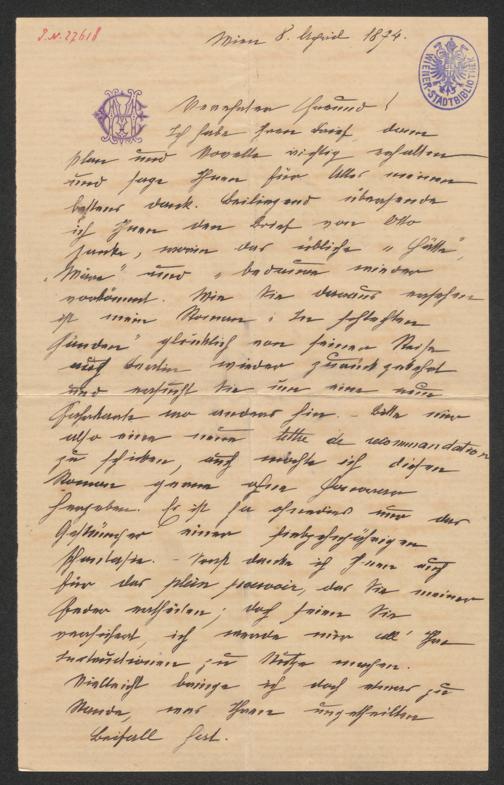 J. N. 27618
Wien 8. April 1894.
WIENER-STADTBIBLIOTHEK
Verehrter Freund!
Ich habe Ihren Brief, dann
Plan und Novelle richtig erhalten
und sage Ihnen für Alles meinen
besten Dank. Beiliegend übersende
ich Ihnen den Brief von Otto
Janke, worin das übliche "Hätte",
"Wäre" und "bedaure" wieder
vorkömmt. Wie Sie daraus ersehen
ist mein Roman: "In schlechten
Händen" glücklich von seiner Reise
aus Berlin wieder zurückgekehrt
und ersucht Sie um eine neue
Fahrkarte wo anders hin. – Bitte mir
also eine neue lettre de recommandation
zu schicken, auch möchte ich diesen
Roman gerne ohne Honorar
hergeben. Er ist ja ohnedies nur das
einer siebzehnjährigen
Phantasie. – Sonst danke ich Ihnen auch
für das plein pouvoir, das Sie meiner
Feder ertheilen; doch seien Sie
versichert, ich werde mir all' Ihre
Instructionen zu Nutze machen.
Vielleicht bringe ich doch etwas zu
Stande, was Ihren ungetheilten
Beifall hat.